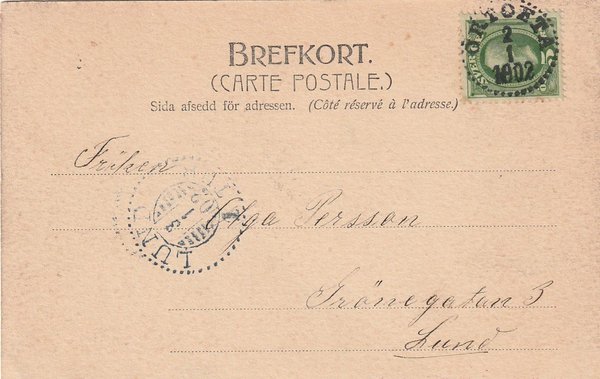 BREFKORT.
(CARTE POSTALE.)
Sida afsedd för adressen. (Côté réservé à l'adresse.)
2
1
1902
Fröken
Olga Persson
LUND
Grönegatan 3
Lund